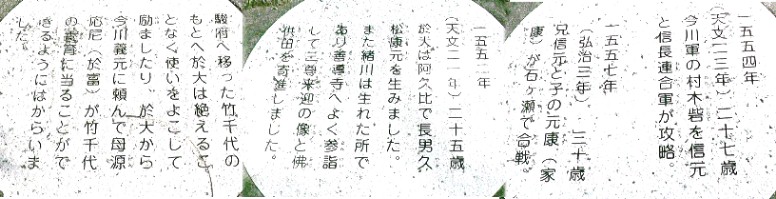 駿府へ移った竹千代の
もとへ於大は絶えるこ
となく使いをよこして
励ましたり、於大から
今川義元に頼んで母源
応尼(於富)が竹千代
の養育に当ることがで
きるようにはからいま
した。
一五五二年
(天文二一年)二十五歳
於大は阿久比で長男久
松康元を生みました。
また緒川は生れた所で
あり善導寺へよく参詣
して三尊来迎の像と佛
供田を寄進しました。
一五五四年
(天文二三年)二十七歳
今川軍の村木砦を信元
と信長連合軍が攻略。
一五五七年
(弘治三年) 三十歳
兄信元と子の元康(家
康)が石ヶ瀬で合戦。